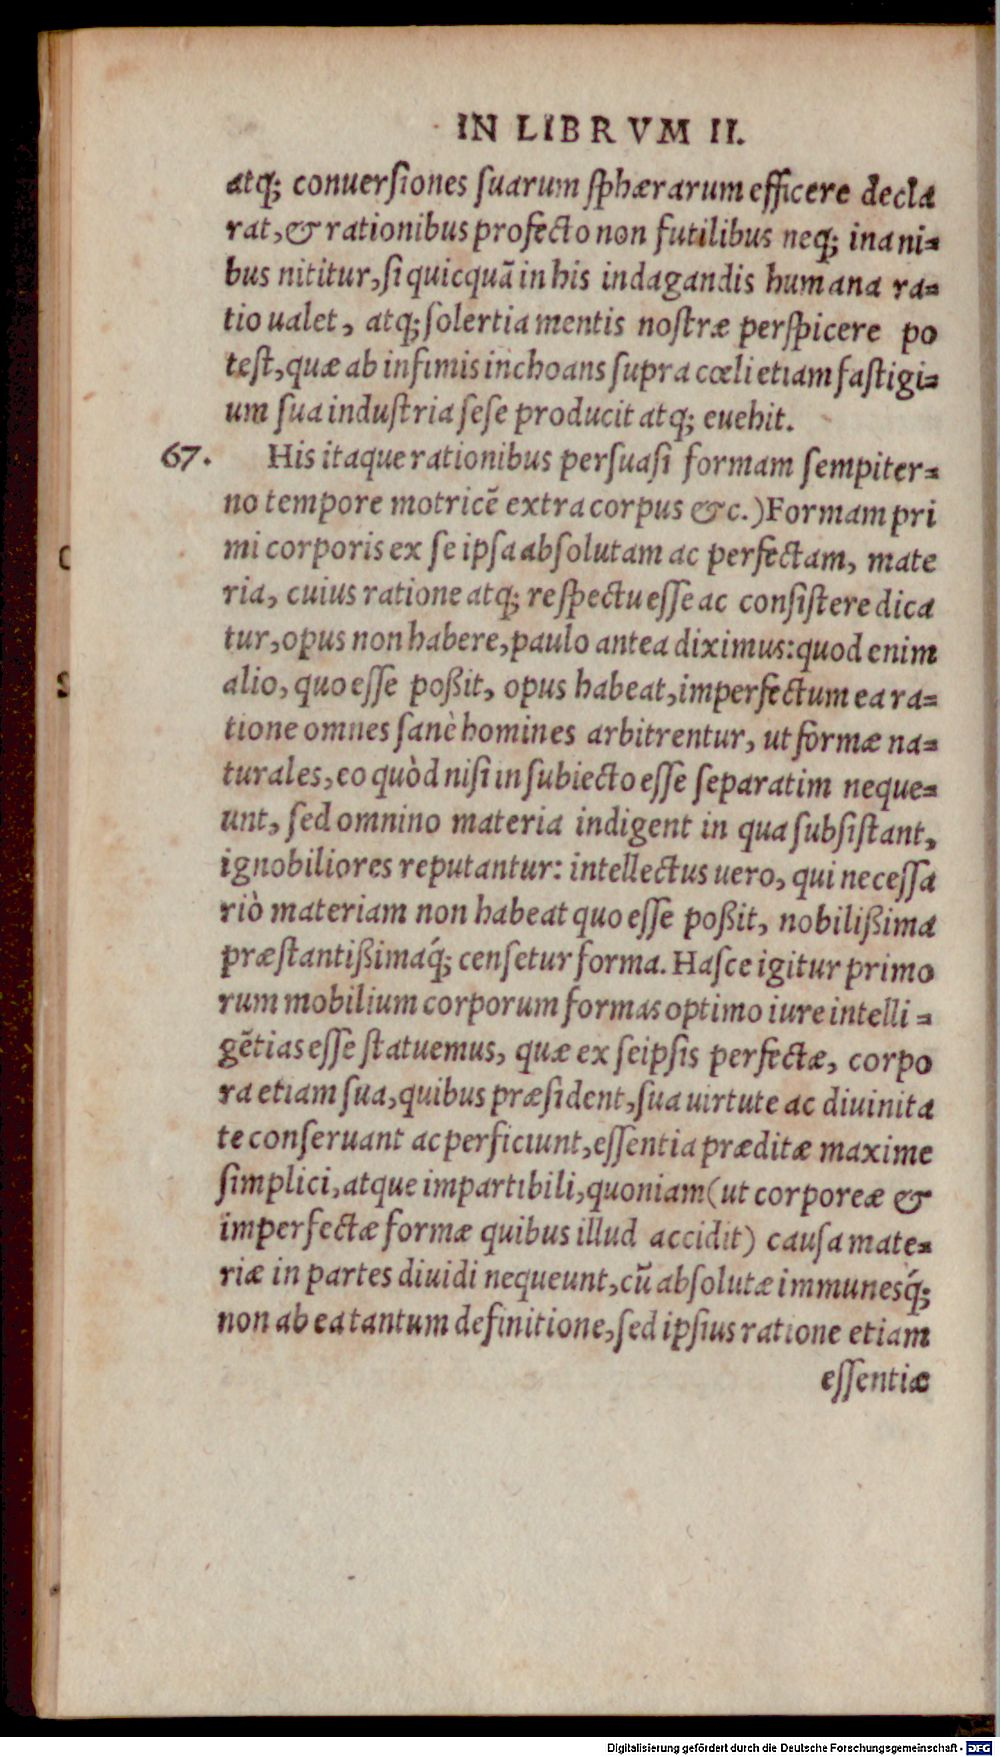 IN LIBRVM II.
atq; conuersiones suarum sphærarum efficere decla
rat, & rationibus profecto non futilibus neq; inani-
bus nititur, si quicquã in his indagandis humana ra-
tio ualet, atq; solertia mentis nostræ perspicere po
test, quæ ab infimis inchoans supra cœli etiam fastigi-
um sua industria sese producit atq; euehit.
67. His itaque rationibus persuasi formam sempiter-
no tempore motricẽ extra corpus &c.) Formam pri
mi corporis ex se ipsa absolutam ac perfectam, mate
ria, cuius ratione atq; respectu esse ac consistere dica
tur, opus non habere, paulo antea diximus: quod enim
alio, quo esse poßit, opus habeat, imperfectum ea ra-
tione omnes sanè homines arbitrentur, ut formæ na-
turales, eo quòd nisi in subiecto esse separatim neque-
unt, sed omnino materia indigent in qua subsistant,
ignobiliores reputantur: intellectus uero, qui necessa
riò materiam non habeat quo esse poßit, nobilißima
præstantißimaq́; censetur forma. Hasce igitur primo
rum mobilium corporum formas optimo iure intelli-
gẽtias esse statuemus, quæ ex seipsis perfectæ, corpo
ra etiam sua, quibus præsident, sua uirtute ac diuinita
te conseruant ac perficiunt, essentia præditæ maxime
simplici, atque impartibili, quoniam (ut corporeæ &
imperfectæ formæ quibus illud accidit) causa mate-
riæ in partes diuidi nequeunt, cũ absolutæ immunesq́;
non ab ea tantum definitione, sed ipsius ratione etiam
essentiæ
Digitalisierung gefördert durch die Deutsche Forschungsgemeinschaft - DFG